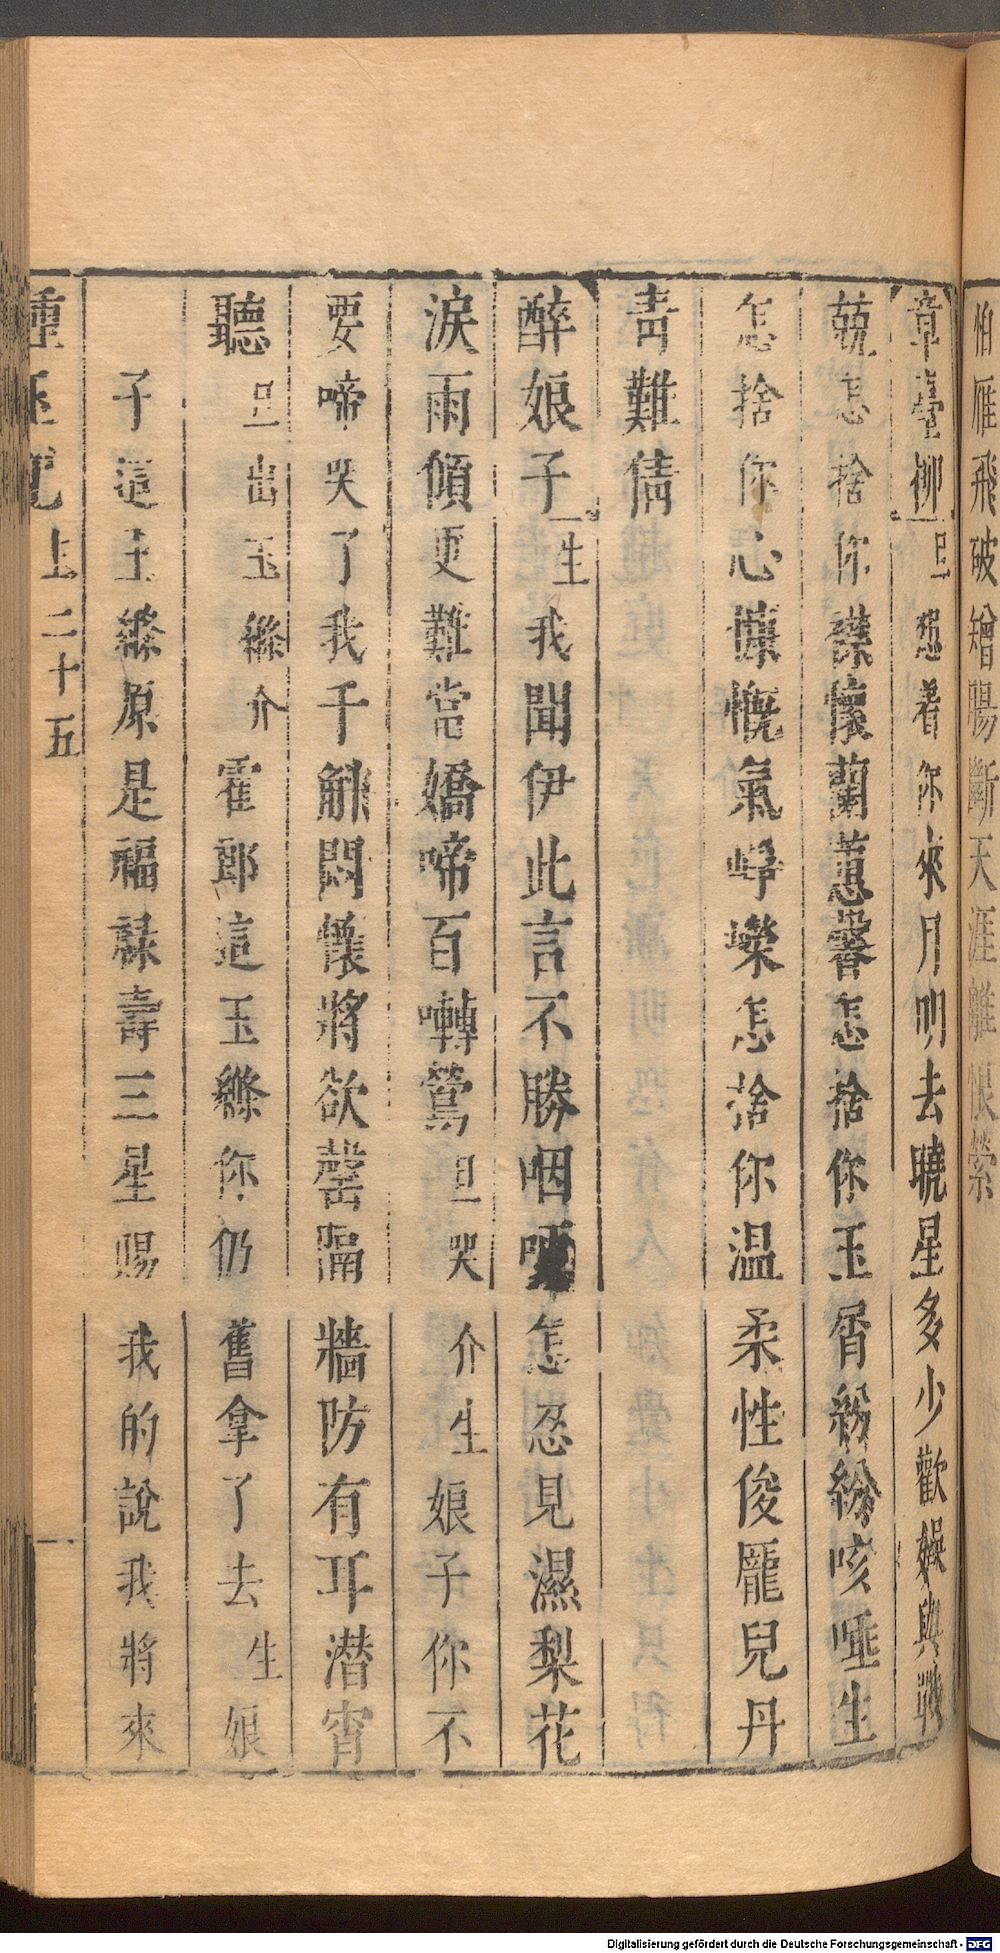 怕雁飛破矰腸斷天涯離恨縈
章臺柳旦想着你來月明去曉星多少歡娛與
兢怎捨你襟懷蘭蕙馨怎捨你玉屑紛紛咳唾生
怎捨你心慷慨氣崢嶸怎捨你温柔性俊龐兒丹
青難倩
醉娘子生我聞伊此言不勝咽哽怎忍見濕梨花
淚雨傾更難當嬌啼百囀鶯旦哭介生娘子你不
要啼哭了我千觧悶懷將欲罄隔牆防有耳潜窅
聽旦出玉縧介霍郎這玉縧你仍舊拿了去生娘
子這玉縧原是福祿壽三星賜我的說我將來
種玉記上二十五
Digitalisierung gefördert durch die Deutsche Forschungsgemeinschaft - DFG